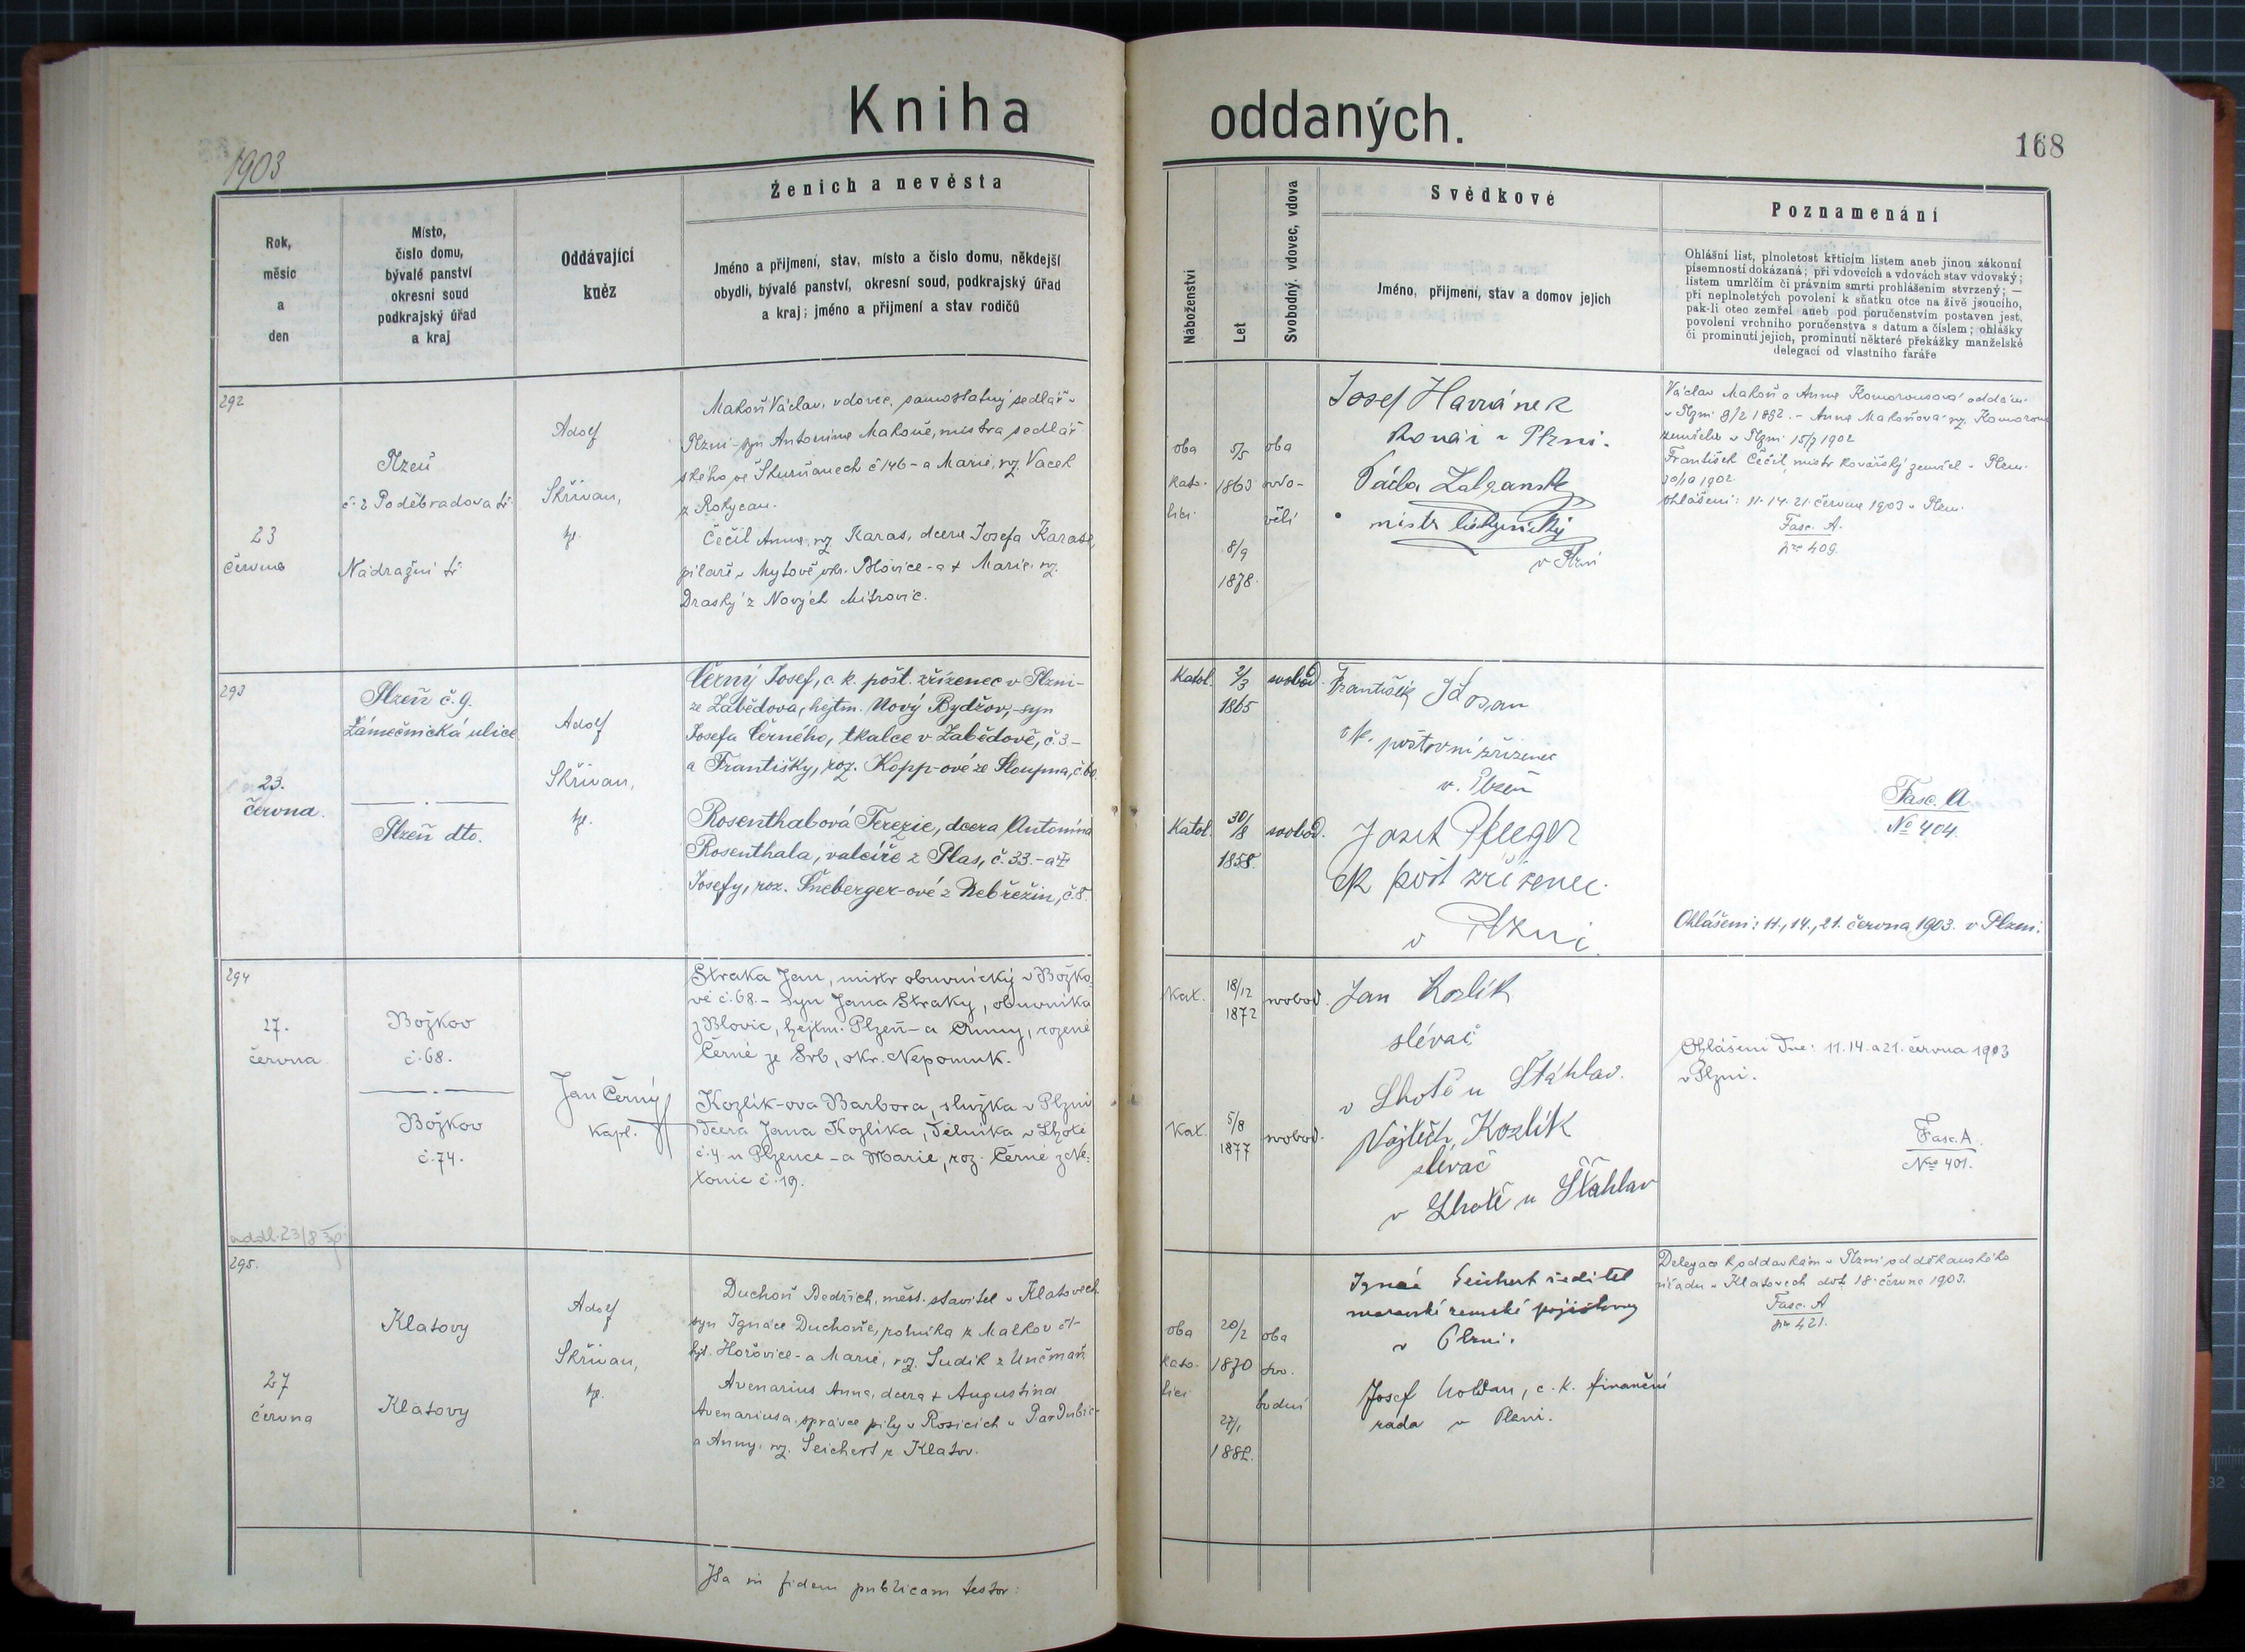 Kniha oddaných.
168
1903
Ženich a nevěsta
Rok,
měsíc
a
den
Místo,
číslo domu,
bývalé panství
okresní soud
podkrajský úřad
a kraj
Oddávající
kněz
Jméno a přijmení, stav, místo a číslo domu, někdejší
obydlí, bývalé panství, okresní soud, podkrajský úřad
a kraj; jméno a přijmení a stav rodičů
Náboženství
Let
Svobodný, vdovec, vdova
Svědkové
Jméno, přijmení, stav a domov jejich
Poznamenání
Ohlášní list, plnoletost křticím listem aneb jinou zákonní
písemností dokázaná; při vdovcích a vdovách stav vdovský;
listem umrlčím či právním smrti prohlášením stvrzený; —
při neplnoletých povolení k sňatku otce na živě jsoucího,
pak-li otec zemřel aneb pod poručenstvím postaven jest,
povolení vrchního poručenstva s datum a číslem; ohlášky
či prominutí jejich, prominutí některé překážky manželské
delegací od vlastního faráře
292
23
června
Plzeň
č. 2 Poděbradova tř.
Nádražní tř.
Adolf
Skřivan,
Makoň Václav, vdovec, samostatný sedlář v
Plzni - syn Antonína Makoně, mistra sedlář-
ského ve Skurňanech č 146 - a Marie, roz. Vacek
z Rokycan.
Čečil Anna, roz Karas, dcera Josefa Karase,
pilaře v Mytově okr. Blovice - a + Marie, roz.
Draský z Nových Mitrovic.
oba
kato-
líci
5/5
1863
8/9
1878.
oba
ovdo-
vělí
Josef Havránek
kovář v Plzni.
mistr
v Plzni
Václav Makoň a Anna Komorousová oddáni
v Plzni 8/2 1892. - Anna Makoňová roz. Komorous
zemřela v Plzni 15/7 1902
František Čečil, mistr kovářský zemřel v Plzni
30/10 1902.
Ohlášeni: 11. 14. 21. června 1903 v Plzni
Fasc. A.
Nro 409.
293
23.
června.
Plzeň č. 9.
Zámečnická ulice
Plzeň dto.
Adolf
Skřivan,
Černý Josef, c. k. pošt. zřízenec v Plzni -
ze Zábědova, hejtm. Nový Bydžov, - syn
Josefa Černého, tkalce v Zábědově, č. 3 -
a Františky, roz. Kopp-ové ze Sloupna, č. 60.
Rosenthalová Terezie, dcera Antonína
Rosenthala, valcíře z Plas, č. 33. - a +
Josefy, roz. Šneberger-ové z Nebřežin, č. 8.
Katol.
2/3
1865
svobod.
Katol.
30/8
1858.
svobod.
František
c. k. poštovní zřízenec
v Plzni
Josef Pfleger
ck pošt zřízenec
v Plzni
Fasc. A
No 404.
Ohlášeni: 11., 14., 21. června 1903. v Plzni.
294
27.
června
Božkov
č. 68.
Božkov
č. 74.
Jan Černý
kapl.
Straka Jan, mistr obuvnický v Božko-
vě č. 68. - syn Jana Straky, obuvníka
z Blovic, hejtm. Plzeň - a Anny, rozené
Černé ze Srb, okr. Nepomuk.
Kozlík-ova Barbora, služka v Plzni
dcera Jana Kozlíka, dělníka v Lhotě
č. 4 u Plzence - a Marie, roz. Černé z Ne-
tonic č. 19.
Kat.
18/12
1872
svobod.
Kat.
5/8
1877
svobod.
Jan Kozlík
slévač
v Lhotě u Šťáhlav.
Vojtěch Kozlík
slévač
v Lhotě u Šťáhlav
Ohlášeni dne: 11. 14. a 21. června 1903
v Plzni.
Fasc. A.
Nro 401.
295.
27
června
Klatovy
Klatovy
Adolf
Skřivan,
Duchoň Bedřich, měst. stavitel v Klatovech
syn Ignáce Duchoně, rolníka z Malkov č 1 -
hejt. Hořovice - a Marie, roz. Sudík z Unčmaň
Avenarius Anna, dcera + Augustina
Avenariusa, správce pily v Rosicích u Pardubic -
a Anny, roz. Teichert z Klatov.
oba
kato-
líci
20/2
1870
27/1
1882.
oba
svo-
bodni
Ignác Teichert ředitel
moravské zemské pojišťovny
v Plzni.
Josef Holdan, c. k. finanční
rada v Plzni.
Delegace k oddavkám v Plzni od děkanského
úřadu v Klatovech dtt. 18. června 1903.
Fasc. A
Nro 421.
Ita in fidem publicam testor: